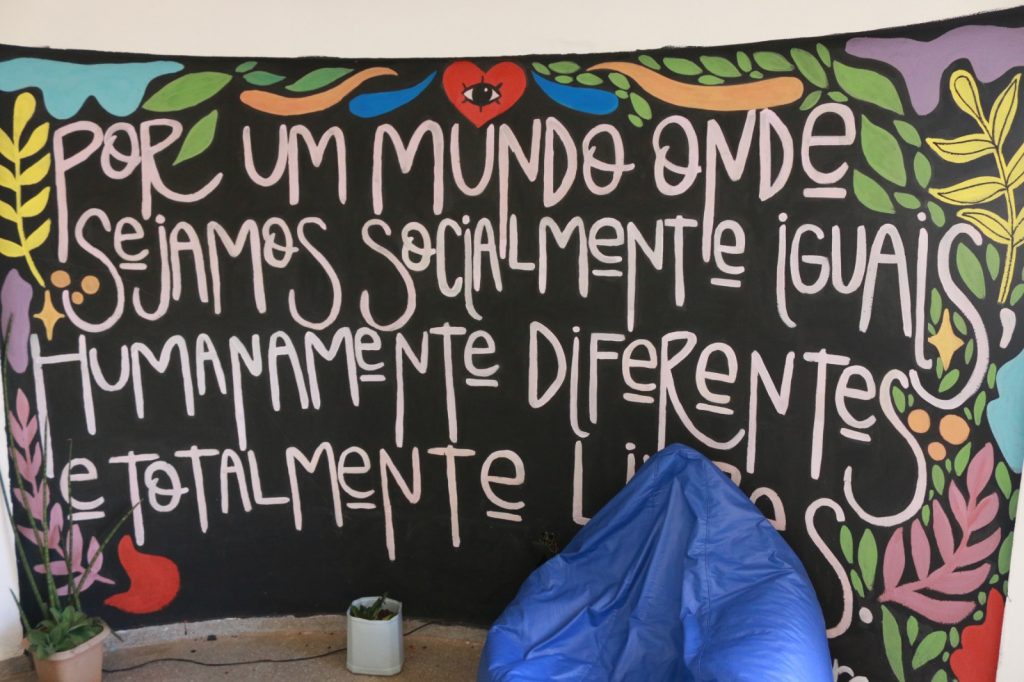 POR UM MUNDO ONDE
SEJAMOS SOCIALMENTE IGUAIS,
HUMANAMENTE DIFERENTES
E TOTALMENTE